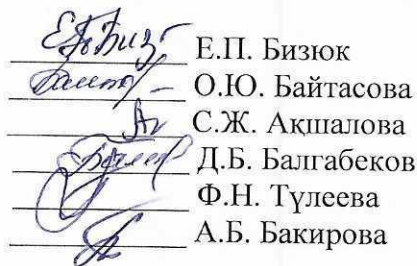 Е.П. Бизюк
О.Ю. Байтасова
С.Ж. Ақшалова
Д.Б. Балгабеков
Ф.Н. Түлеева
А.Б. Бакирова